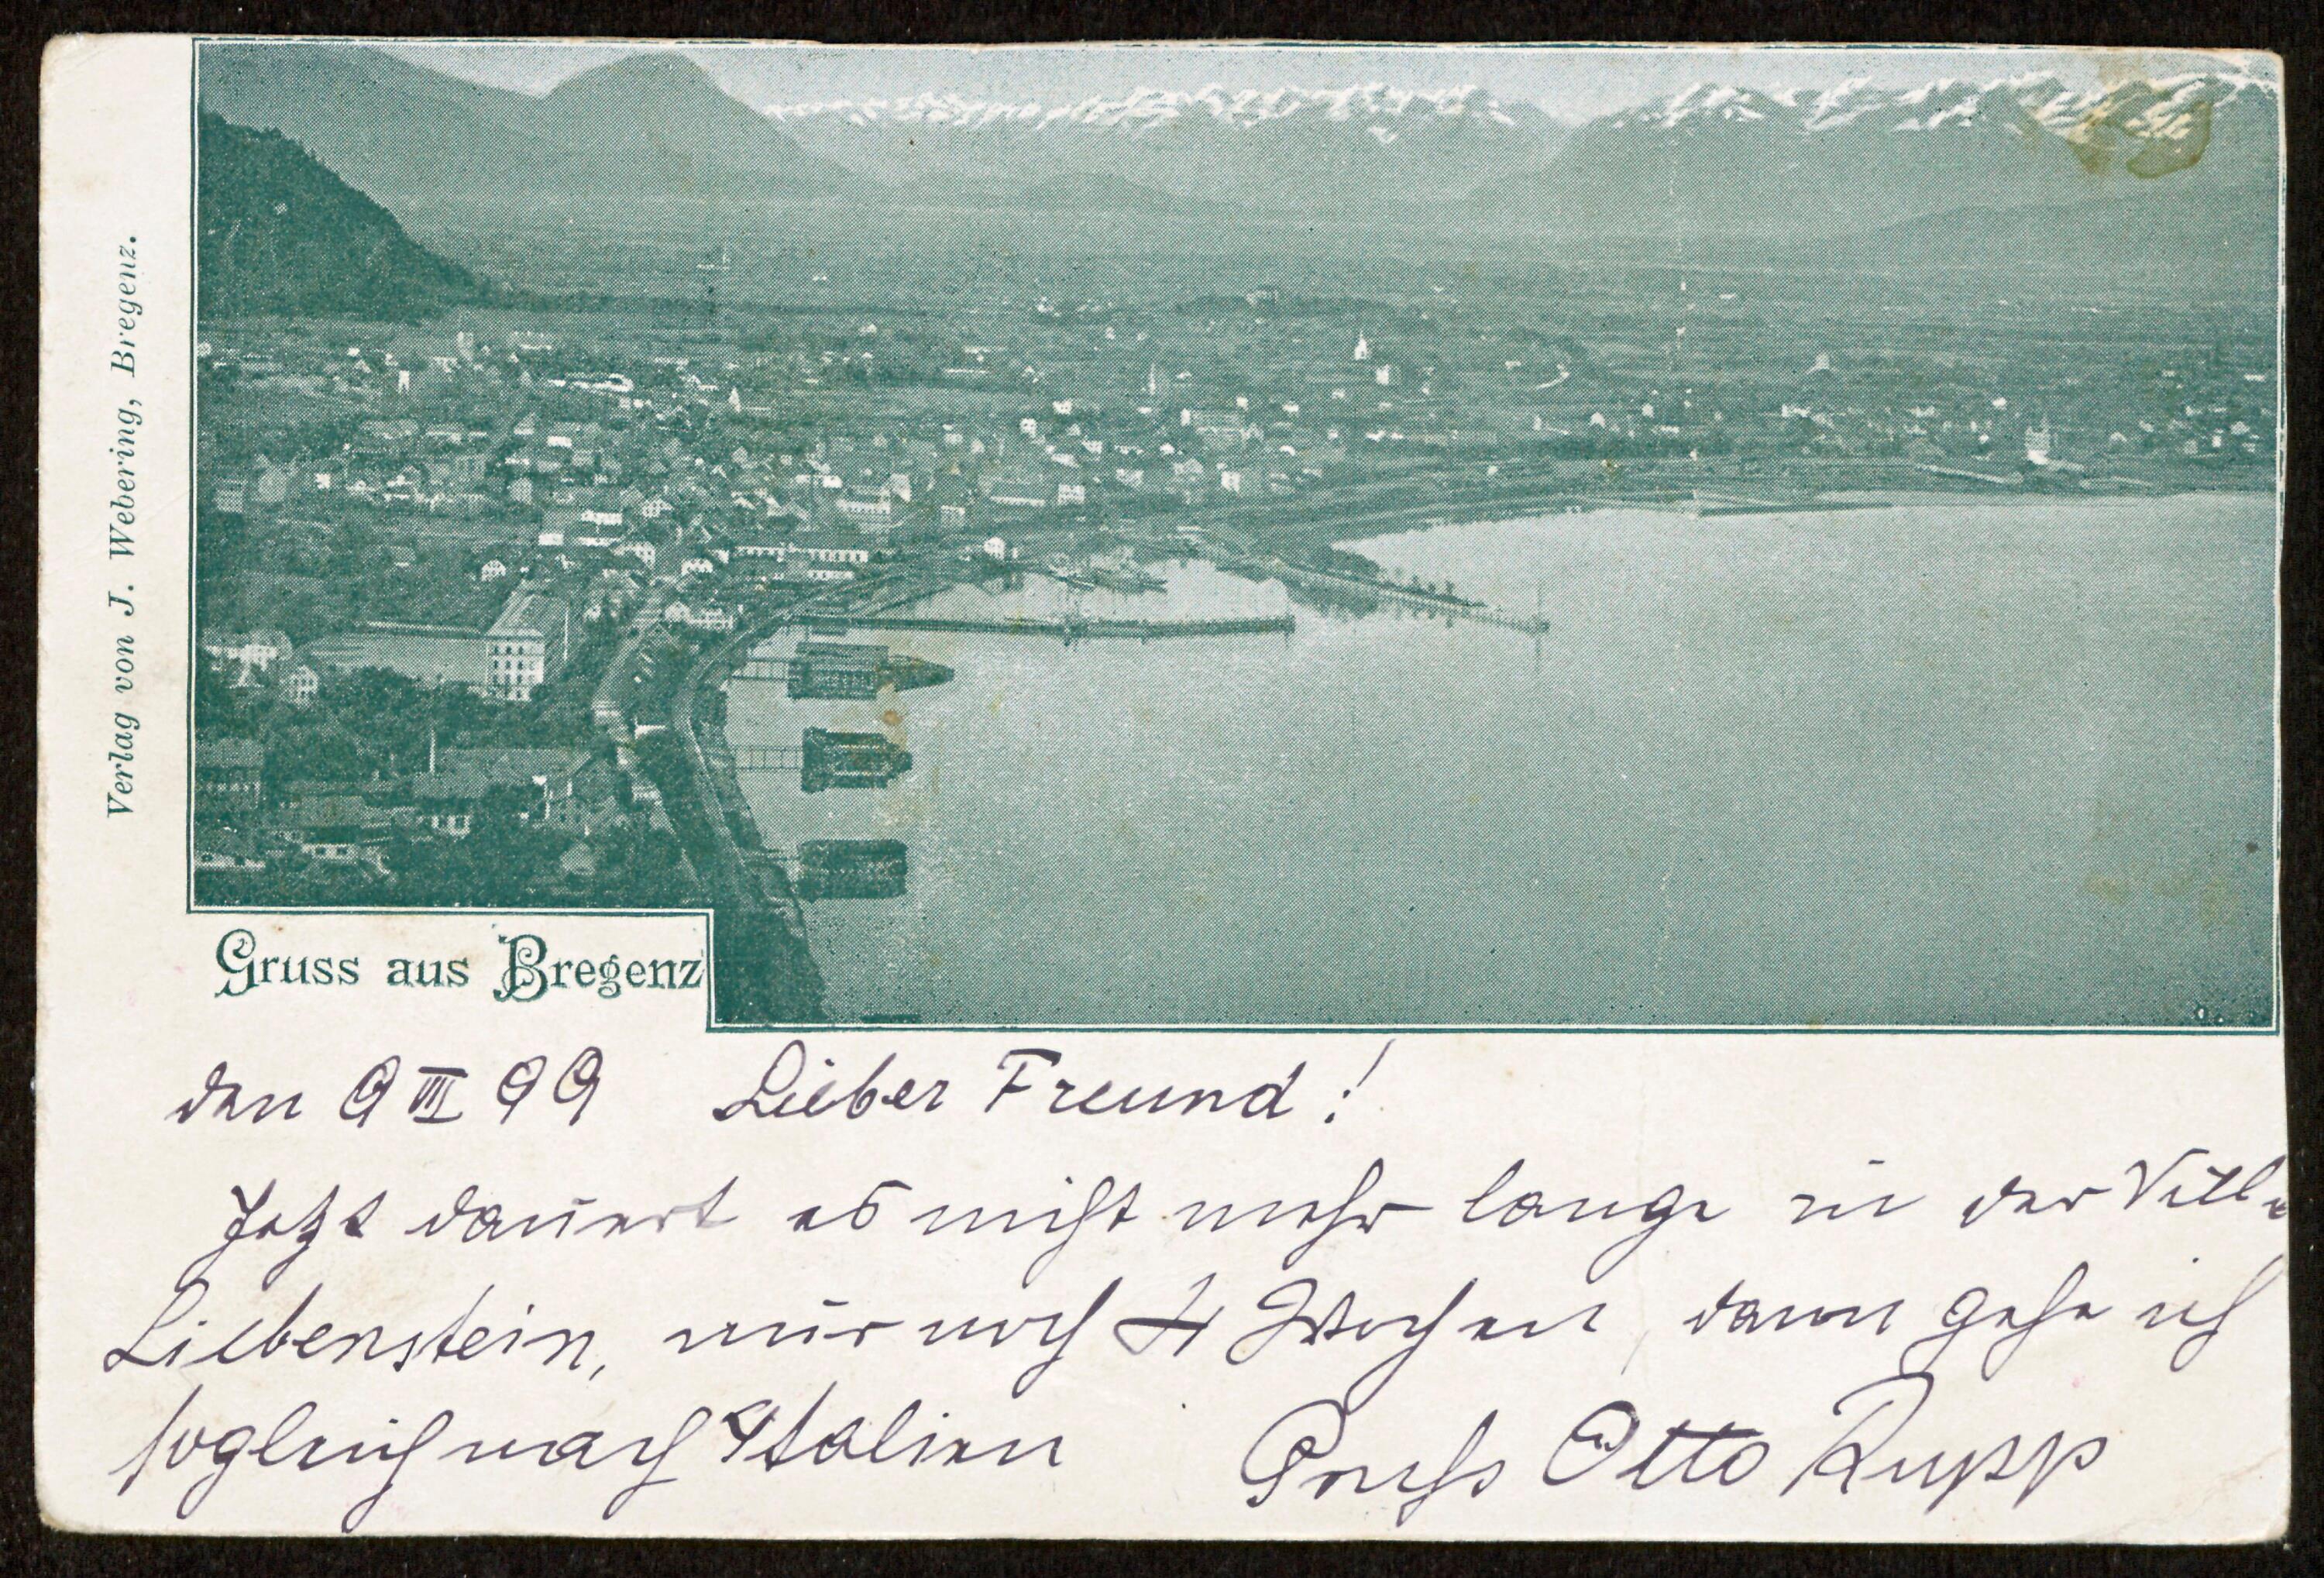 Verlag von J. Webering, Bregenz.
Gruss aus Bregenz
den 9 VII 99 Lieber Freund!
Jetzt dauert es nicht mehr lange in der Villa
Liebenstein, nur noch 4 Wochen, dann gehe ich
sogleich nach Italien Gruss Otto Rupp